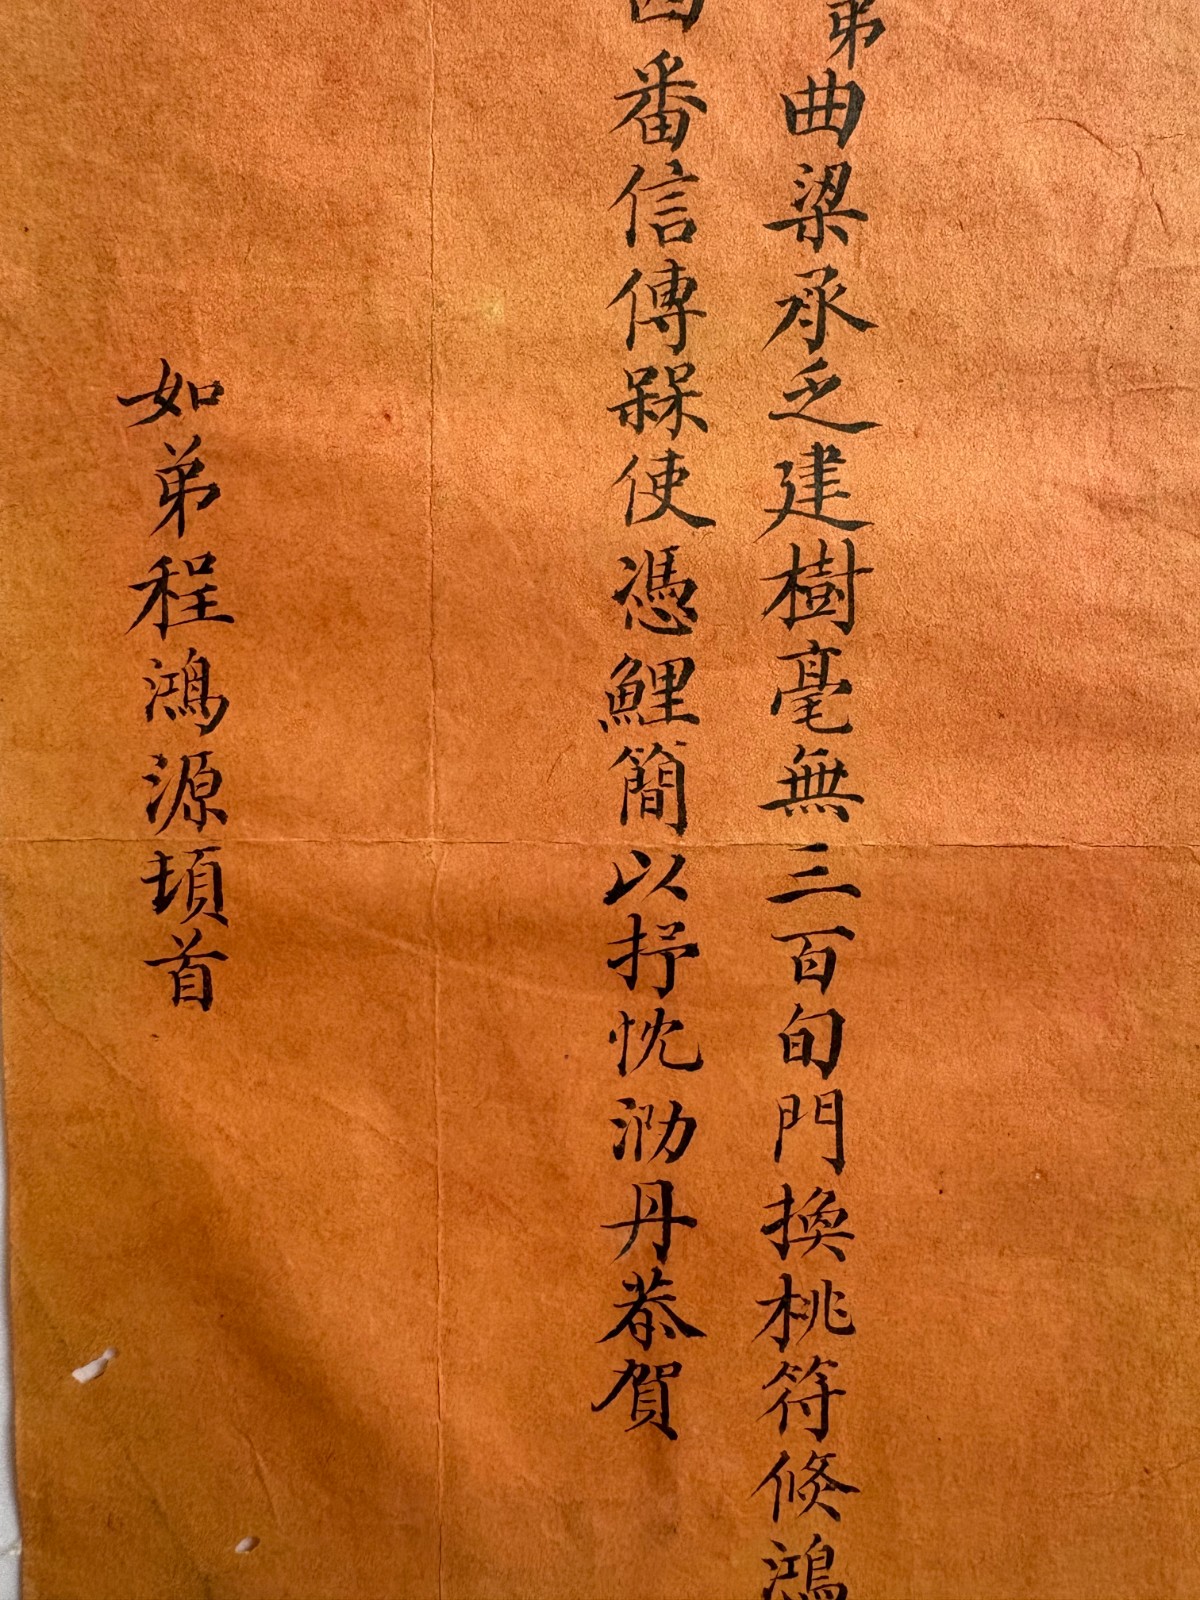 弟曲梁承乏建樹毫無三百旬門換桃符倏鴻
四番信傳槑使憑鯉簡以抒忱泐丹恭賀
如弟程鴻源頓首